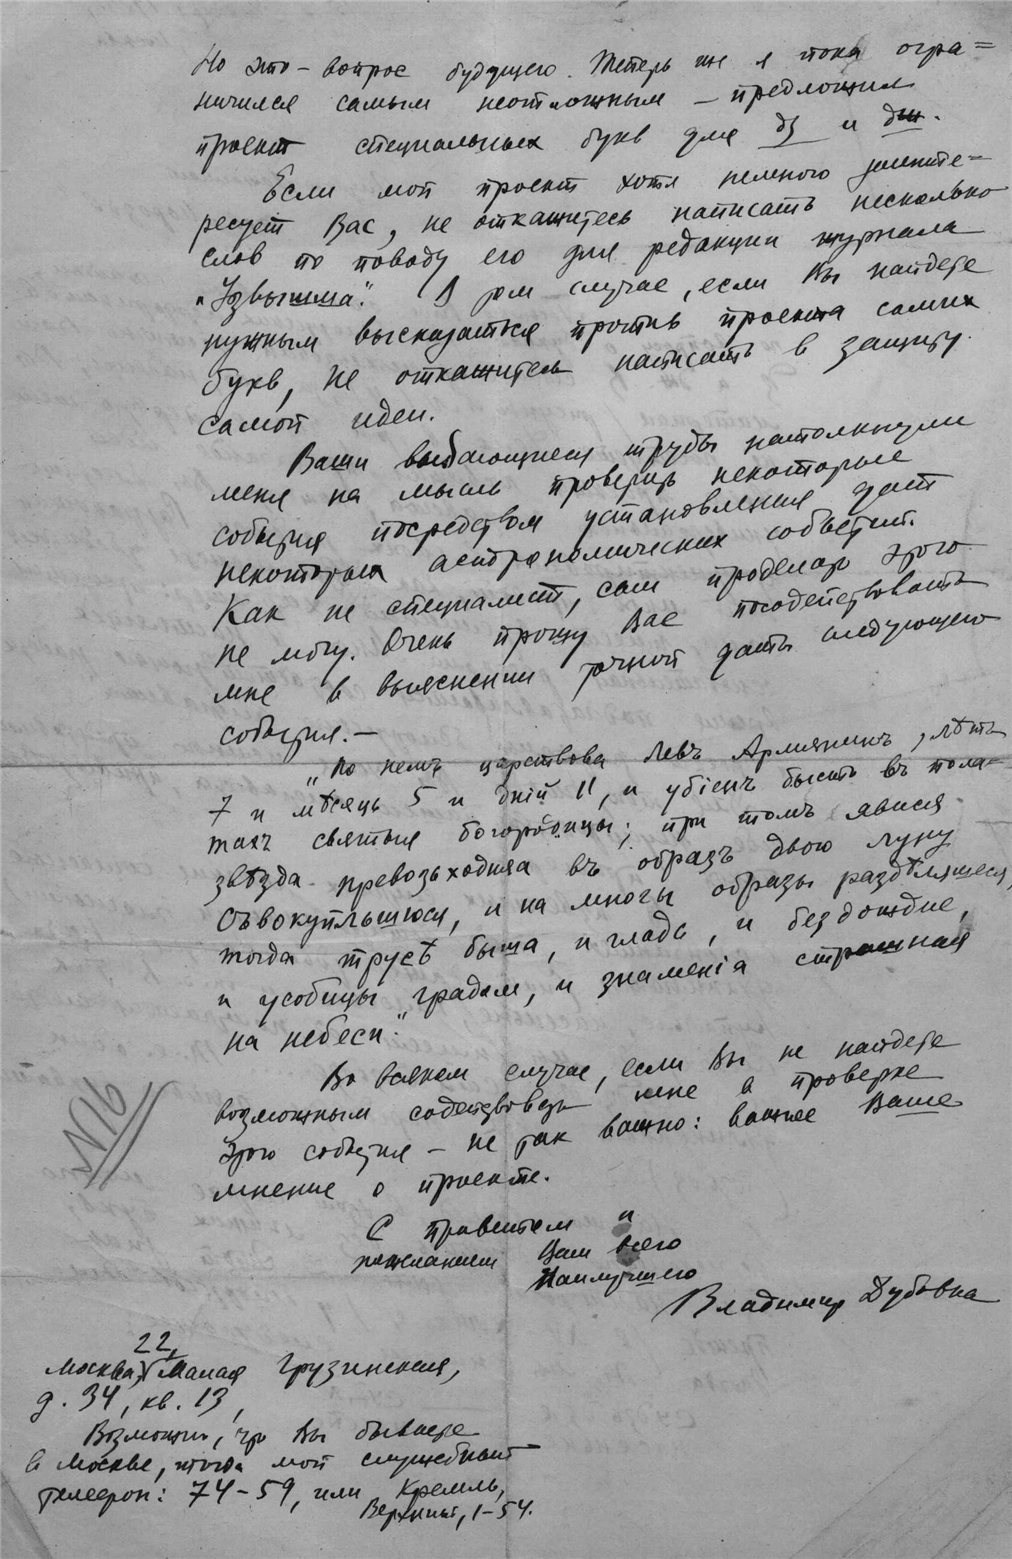 Но это – вопрос будущего. Теперь же я пока огра=
ничился самым неотложным – предложил
проект специальных букв для дз и дж.
Если мой проект хотя немного заинте=
ресует Вас, не откажитесь написать несколько
слов по поводу его для редакции журнала
„Узвышша". В том случае, если Вы найдете
нужным высказаться против проекта самих
букв, не откажитесь написать в защиту
самой идеи.
Ваши выдающиеся труды натолкнули
меня на мысль проверить некоторые
события посредством установления дат
некоторых астрономических событий.
Как не специалист, сам проделать этого
не могу. Очень прошу Вас посодействовать
мне в выяснении точной даты следующего
события. –
„По немъ царствова Левъ Армянинъ, лѣтъ
7 и мѣсяць 5 и дній 11, и убіенъ бысть въ пола=
тахъ святыя богородицы; при томъ явися
звѣзда превозъходняа въ образъ двою луну
съвокупльшюся, и на многы образы раздѣляшеся,
тогда трусѣ быша, и гладъ, и бездождие,
и усобицы градом, и знаменіа страшная
на небеси."
Во всяком случае, если Вы не найдете
возможным содействовать мне в проверке
этого события – не так важно: важнее Ваше
мнение о проекте.
С приветом и
пожеланием Вам всего
Наилучшего
Владимир Дубовка
№16
22,
Москва, Малая Грузинская,
д. 34, кв. 13,
Возможно, что Вы бываете
в Москве, тогда мой служебный
телефон: 74-59, или Кремль,
Верхний, 1-54.